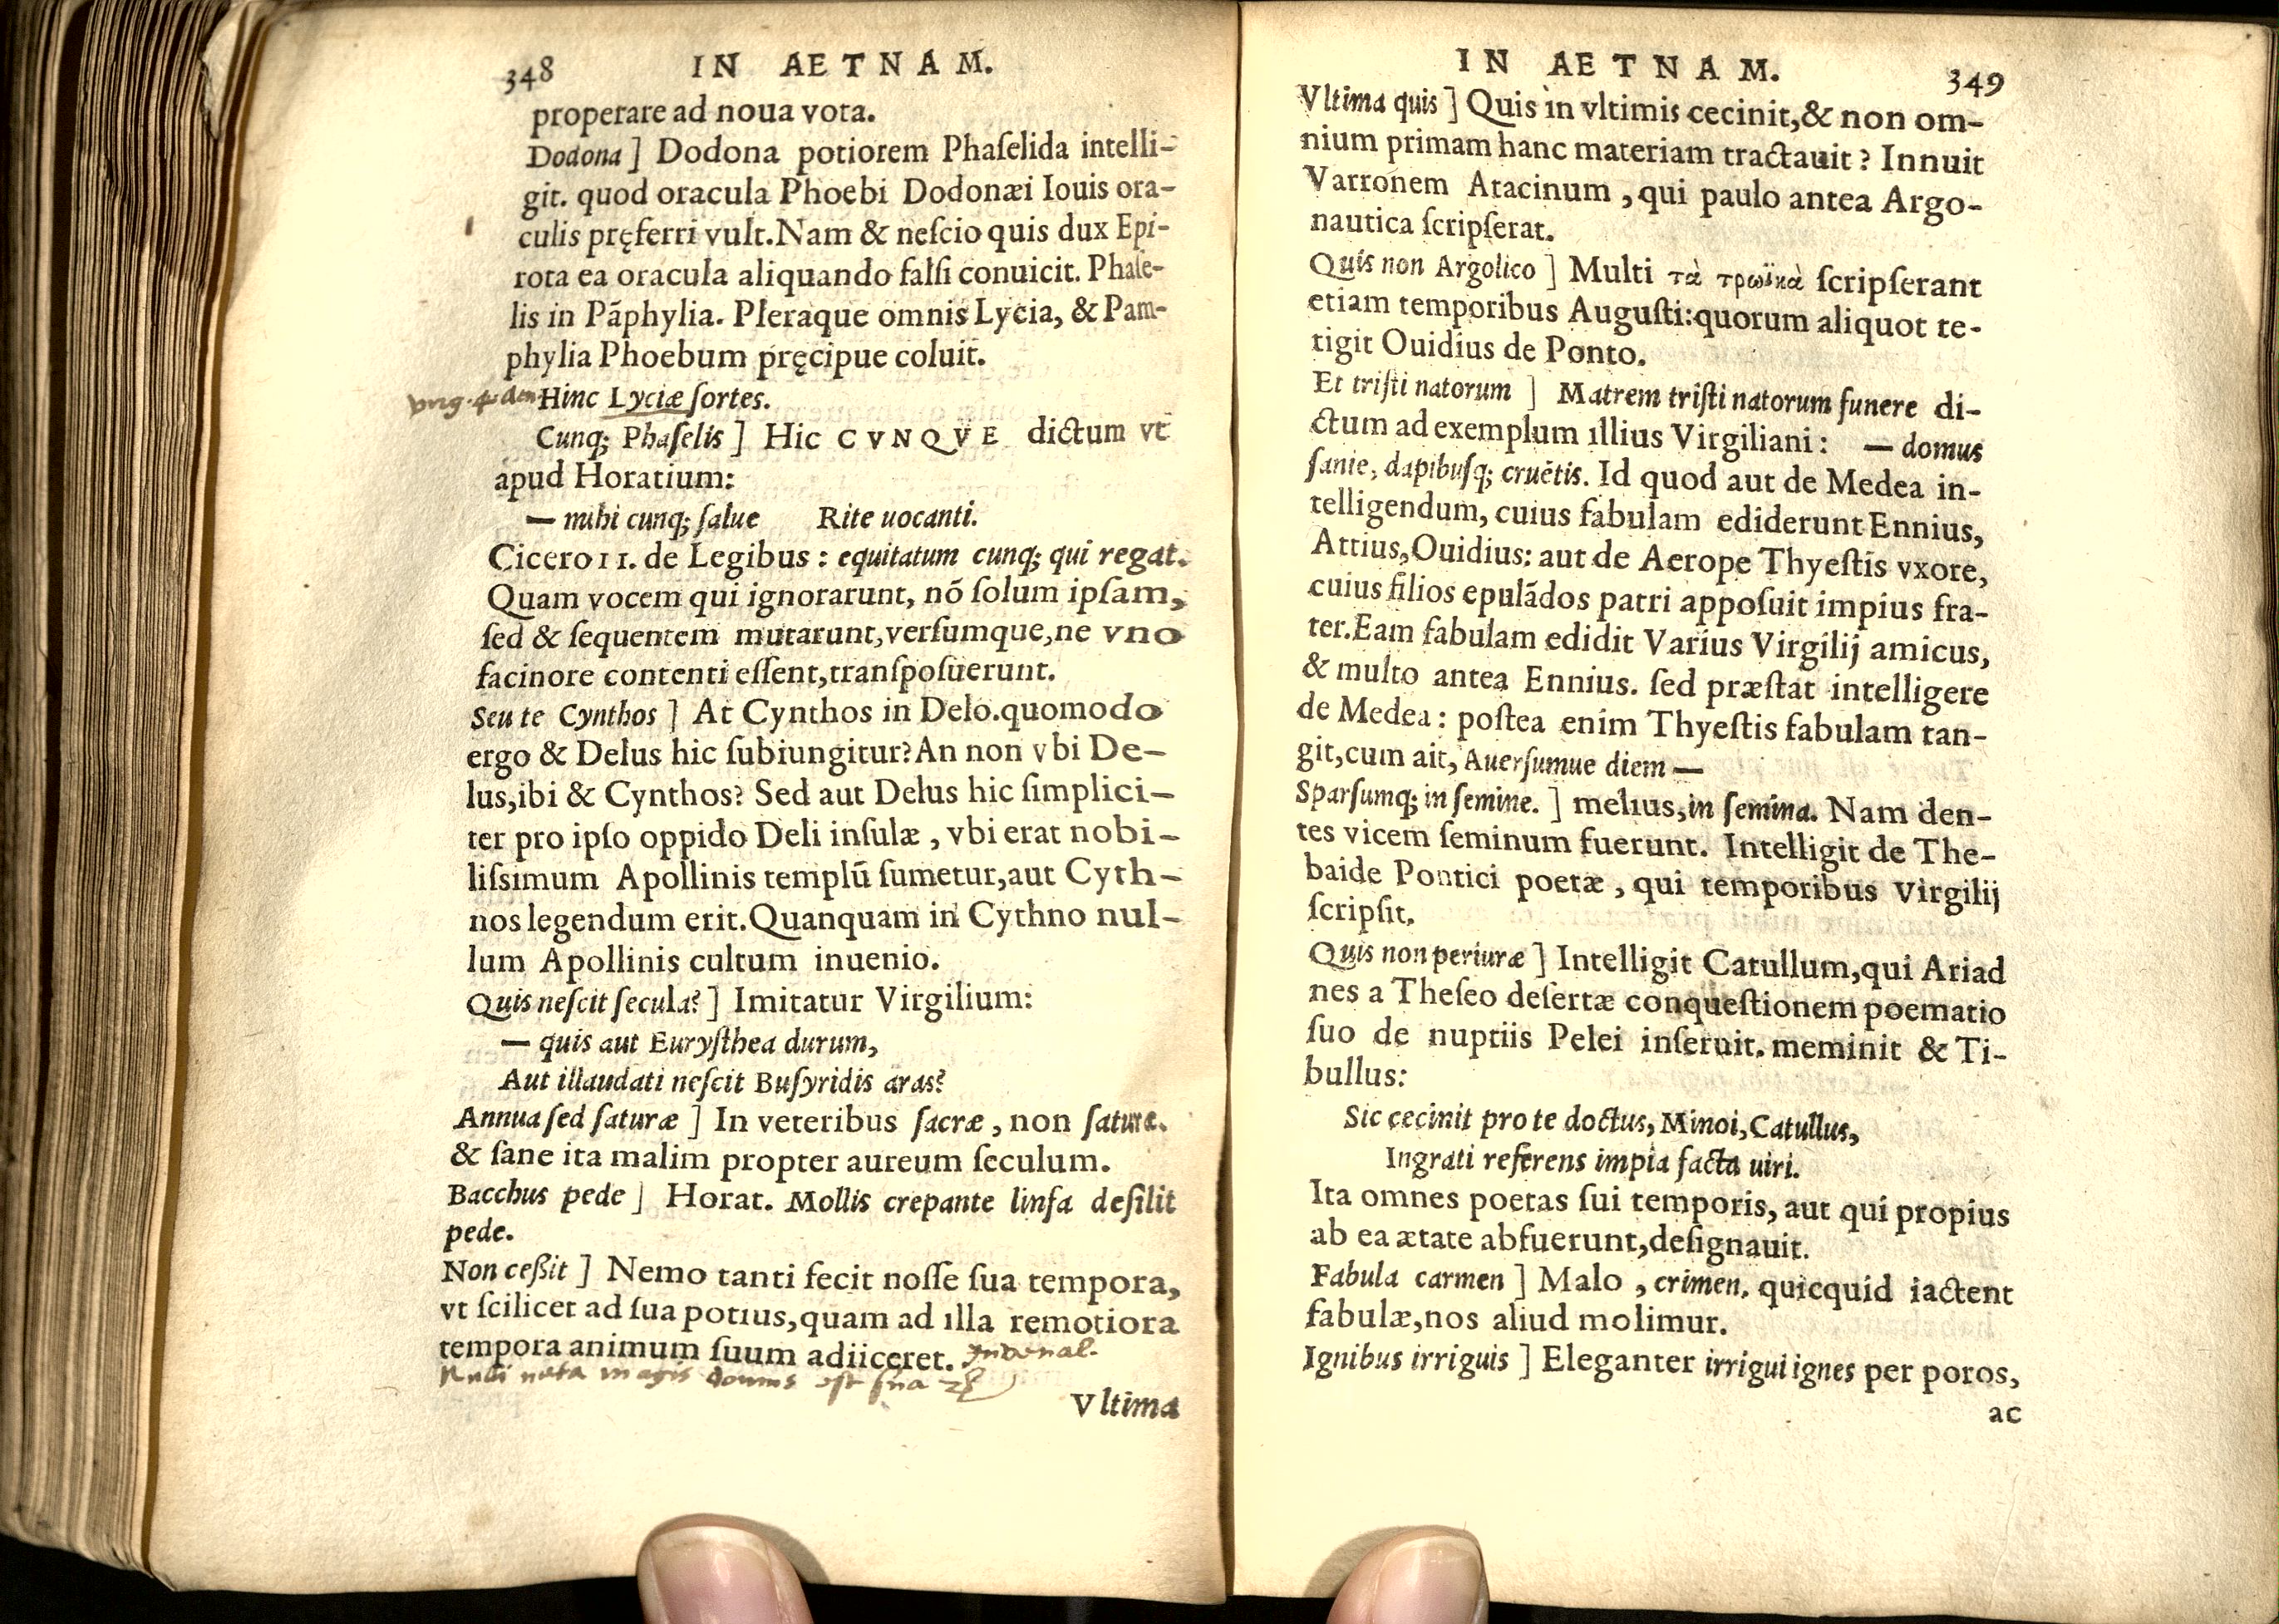 348 IN AETNAM.
properare ad noua vota.
Dodona ] Dodona potiorem Phaſelida intelli-
git. quod oracula Phoebi Dodonæi Iouis ora-
culis pręferri vult. Nam & neſcio quis dux Epi-
rota ea oracula aliquando falſi conuicit. Phaſe-
lis in Pãphylia. Pleraque omnis Lycia, & Pam-
phylia Phoebum pręcipue coluit.
Hinc Lyciæ ſortes.
Cunq; Phaſelis ] Hic CVNQVE dictum vt
apud Horatium:
— mihi cunq; ſalue Rite uocanti.
Cicero 11. de Legibus : equitatum cunq; qui regat.
Quam vocem qui ignorarunt, nõ ſolum ipſam,
ſed & ſequentem mutarunt, verſumque, ne vno
facinore contenti eſſent, tranſpoſuerunt.
Seu te Cynthos ] At Cynthos in Delo. quomodo
ergo & Delus hic ſubiungitur? An non vbi De-
lus, ibi & Cynthos? Sed aut Delus hic ſimplici-
ter pro ipſo oppido Deli inſulæ , vbi erat nobi-
liſsimum Apollinis templũ ſumetur, aut Cyth-
nos legendum erit. Quanquam in Cythno nul-
lum Apollinis cultum inuenio.
Quis neſcit ſecula? ] Imitatur Virgilium:
— quis aut Euryſthea durum,
Aut illaudati neſcit Buſyridis aras?
Annua ſed ſaturæ ] In veteribus ſacræ , non ſaturæ.
& ſane ita malim propter aureum ſeculum.
Bacchus pede ] Horat. Mollis crepante linfa deſilit
pede.
Non ceßit ] Nemo tanti fecit noſſe ſua tempora,
vt ſcilicet ad ſua potius, quam ad illa remotiora
tempora animum ſuum adiiceret. Juvenal.
Nulli nota magis domus est sua
Vltima
IN AETNAM. 349
Vltima quis ] Quis in vltimis cecinit, & non om-
nium primam hanc materiam tractauit ? Innuit
Varronem Atacinum , qui paulo antea Argo-
nautica ſcripſerat.
Quis non Argolico ] Multi τὰ τρωϊκὰ ſcripſerant
etiam temporibus Auguſti: quorum aliquot te-
tigit Ouidius de Ponto.
Et triſti natorum ] Matrem triſti natorum funere di-
ctum ad exemplum illius Virgiliani : — domus
ſanie, dapibuſq; cruẽtis. Id quod aut de Medea in-
telligendum, cuius fabulam ediderunt Ennius,
Attius, Ouidius: aut de Aerope Thyeſtis vxore,
cuius filios epulãdos patri appoſuit impius fra-
ter. Eam fabulam edidit Varius Virgilij amicus,
& multo antea Ennius. ſed præſtat intelligere
de Medea : poſtea enim Thyeſtis fabulam tan-
git, cum ait, Auerſumue diem —
Sparſumq; in ſemine. ] melius, in ſemina. Nam den-
tes vicem ſeminum fuerunt. Intelligit de The-
baide Pontici poetæ , qui temporibus Virgilij
ſcripſit.
Quis non periuræ ] Intelligit Catullum, qui Ariad
nes a Theſeo deſertæ conqueſtionem poematio
ſuo de nuptiis Pelei inſeruit. meminit & Ti-
bullus:
Sic cecinit pro te doctus, Minoi, Catullus,
Ingrati referens impia facta uiri.
Ita omnes poetas ſui temporis, aut qui propius
ab ea ætate abfuerunt, deſignauit.
Fabula carmen ] Malo , crimen. quicquid iactent
fabulæ, nos aliud molimur.
Ignibus irriguis ] Eleganter irrigui ignes per poros,
ac